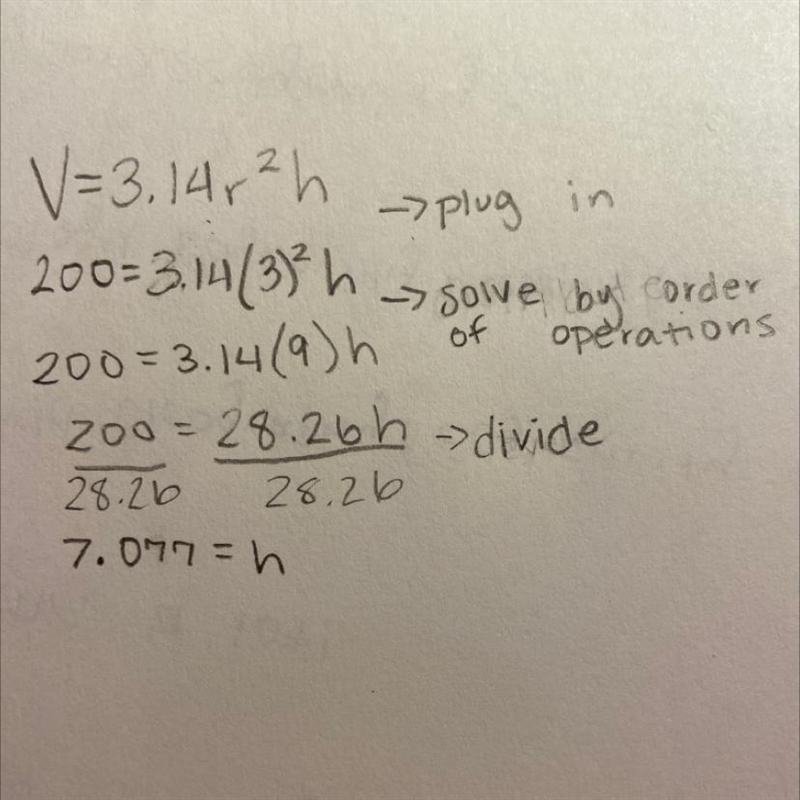 V=3.14r²h → plug in
200=3.14(3)²h → solve by order of operations
200=3.14(9)h
200 = 28.26h → divide
28.26 28.26
7.077=h